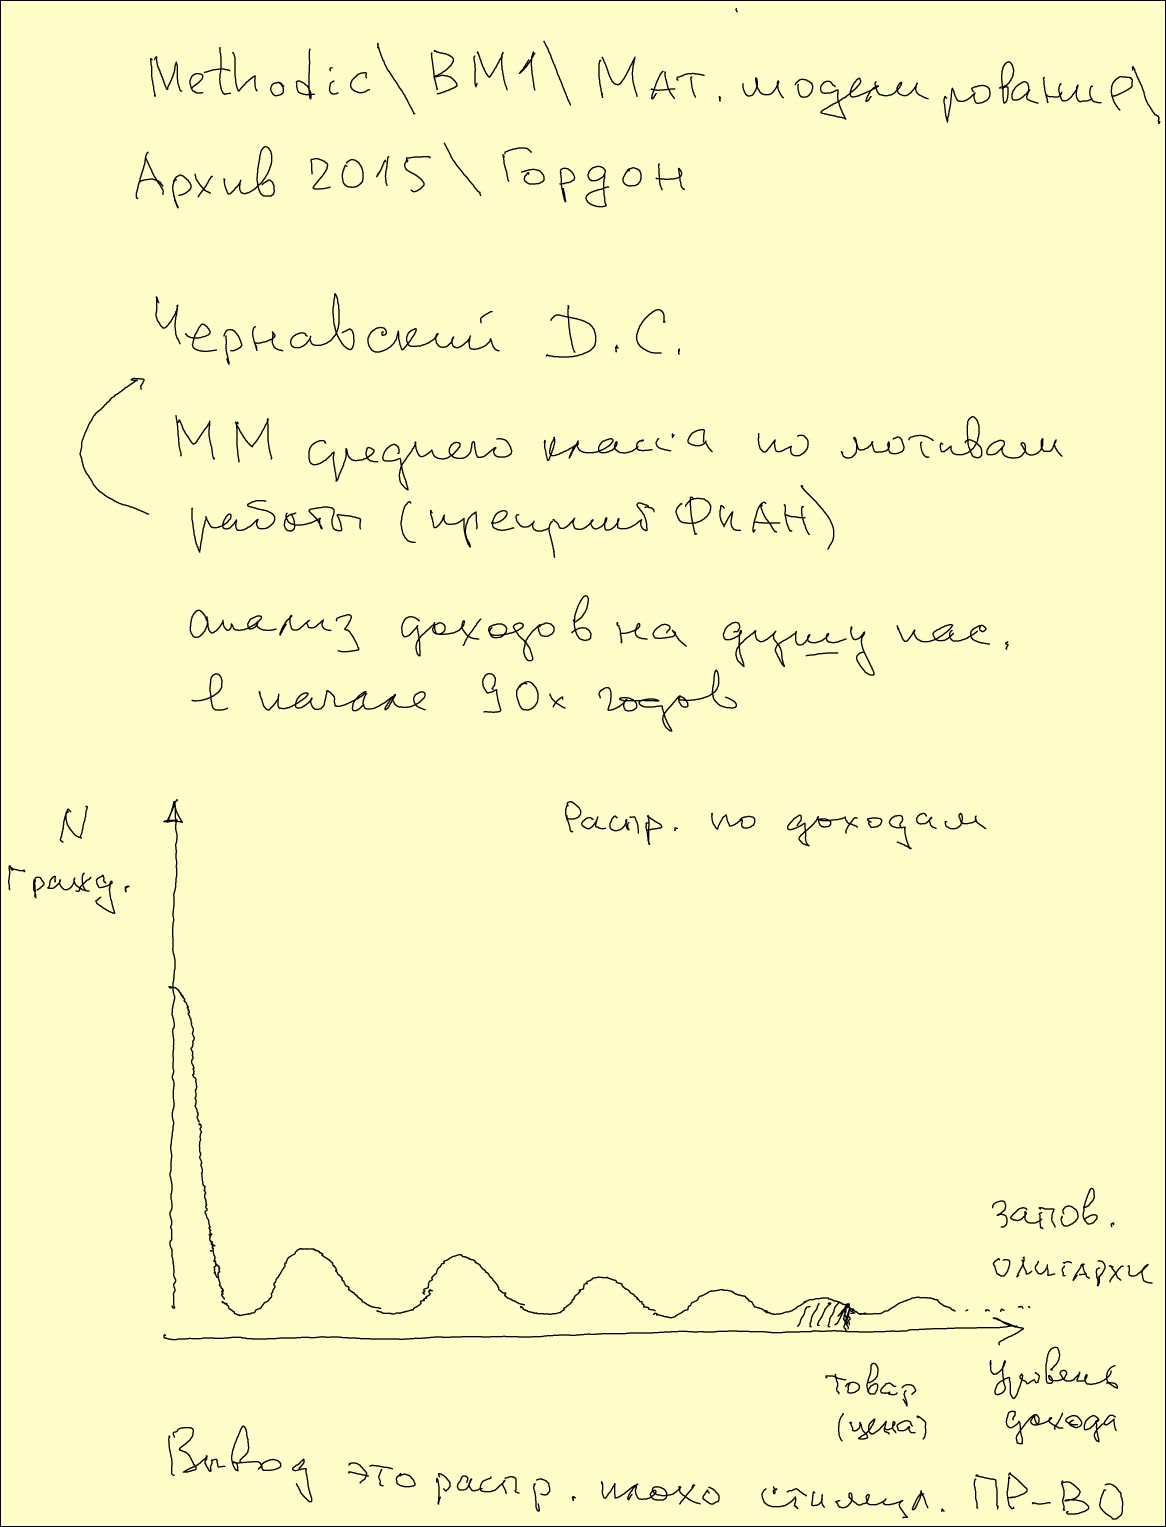 Methodic\ВМ1\Мат. моделирование\
Архив 2015\Гордон
Чернавский Д.С.
ММ среднего класса по мотивам
работы (препринт ФИАН)
анализ доходов на душу нас.
в начале 90х годов
N
Гражд.
Распр. по доходам
запов.
олигархи
товар
(цена)
Уровень
дохода
Вывод это распр. плохо стимул. ПР-ВО